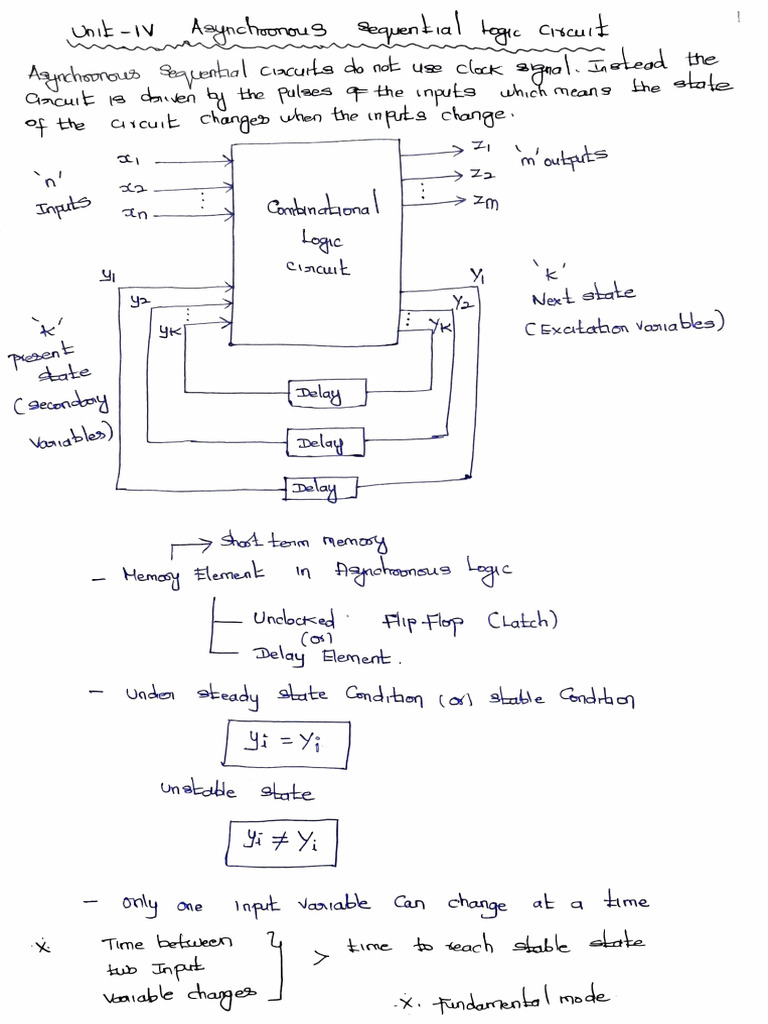 1
Unit-IV Asynchronous Sequential Logic Circuit
Asynchronous Sequential Circuits do not use clock signal. Instead the
Circuit is driven by the pulses of the inputs which means the state
of the circuit changes when the inputs change.
'n'
Inputs
x1
x2
⋮
xn
Combinational
Logic
Circuit
z1
z2
⋮
zm
'm' outputs
y1
y2
⋮
yk
'k'
present
state
(secondary
variables)
Y1
Y2
⋮
Yk
'k'
Next state
(Excitation variables)
Delay
Delay
Delay
→ Short term memory
- Memory Element in Asynchronous Logic
Unclocked Flip-Flop (Latch)
(or)
Delay Element.
- Under steady state Condition (or) stable Condition
yi = Yi
Unstable state
yi ≠ Yi
- only one input variable can change at a time
Time between
two Input
variable changes
> time to reach stable state
Fundamental mode